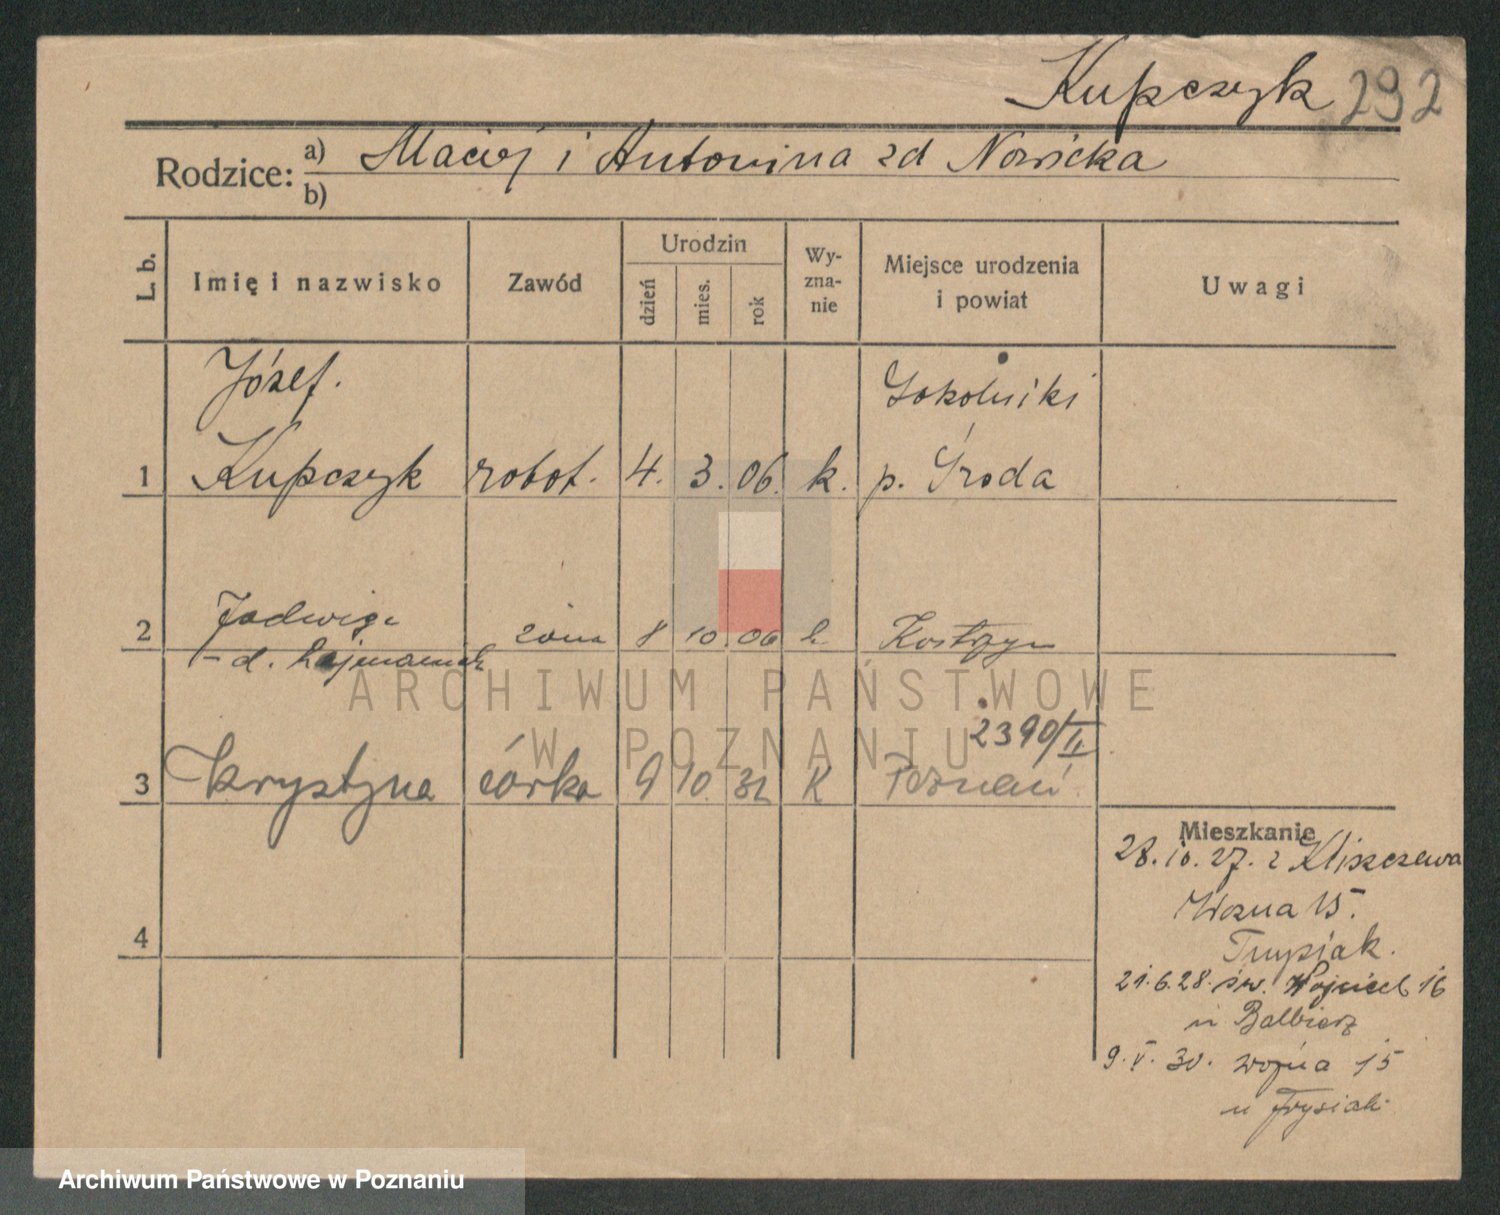 Kupczyk 292
Rodzice: a) Maciej i Antonina zd Nowicka
b)
L. b. Imię i nazwisko Zawód Urodzin dzień mies. rok Wy-zna-nie Miejsce urodzenia i powiat Uwagi
Józef. Sokolniki
1 Kupczyk robot. 4. 3. 06. k. p. Środa
2 Jadwiga żona 8 10. 06 k. Kostrzyn
ARCHIWUM PAŃSTWOWE
W POZNANIU
2390/II
3 Krystyna córka 9 10. 32 K Poznań
Mieszkanie
28.10.27. z Kliszczewa
4 Wozna 15.
21.6.28. św. Wojciech 16
u Balbierz
9.V.30. woźna 15
u
Archiwum Państwowe w Poznaniu